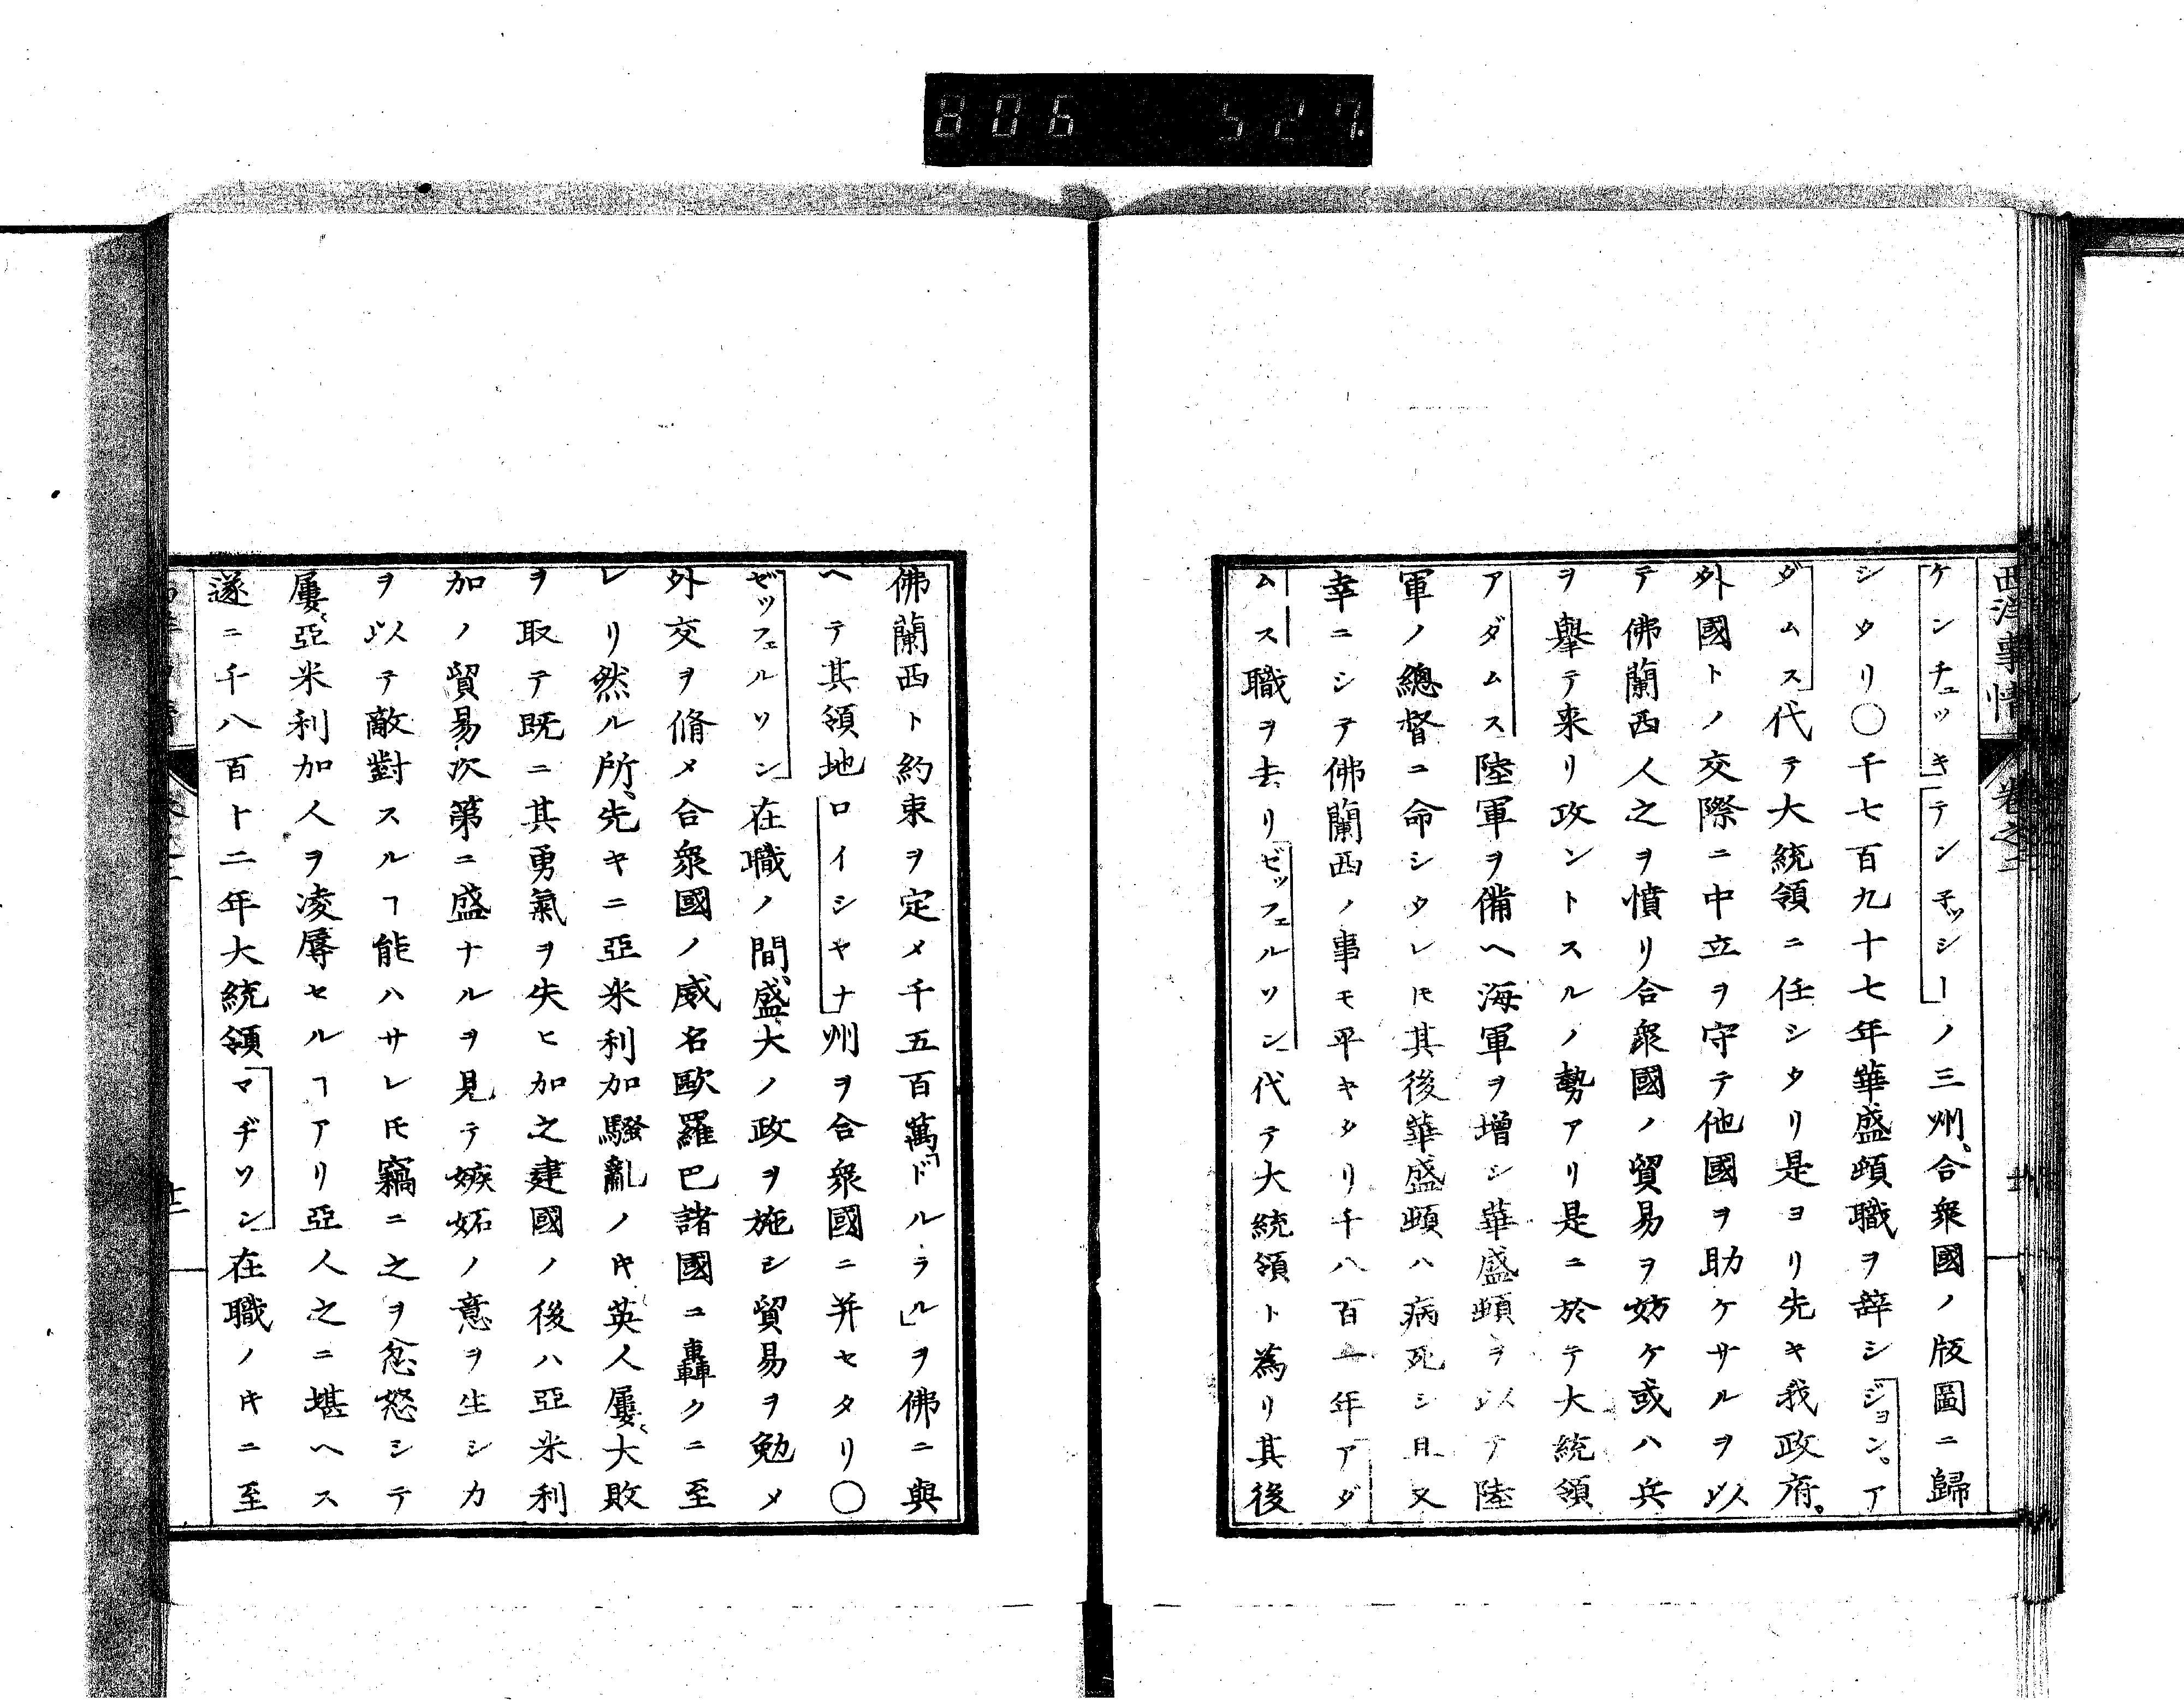 806 527.
西洋事情 巻之二
ケンチュッキテンチッシーノ三州、合衆國ノ版圖ニ歸
シタリ〇千七百九十七年華盛頓職ヲ辞シジョン。ア
ダムス代テ大統領ニ任シタリ是ヨリ先キ我政府。
外國トノ交際ニ中立ヲ守テ他國ヲ助ケサルヲ以
テ佛蘭西人之ヲ憤リ合衆國ノ貿易ヲ妨ケ或ハ兵
ヲ擧テ来リ攻ントスルノ勢アリ是ニ於テ大統領
アダムス陸軍ヲ備ヘ海軍ヲ増シ華盛頓ヲ以テ陸
軍ノ總督ニ命シタレ𪜈其後華盛頓ハ病死シ且又
幸ニシテ佛蘭西ノ事モ平キタリ千八百一年アダ
ムス職ヲ去リゼッフェルソン代テ大統領ト為リ其後
佛蘭西ト約束ヲ定メ千五百萬「ドルラル」ヲ佛ニ與
ヘテ其領地ロイシヤナ州ヲ合衆國ニ并セタリ〇
ゼッフェルソン在職ノ間、盛大ノ政ヲ施シ貿易ヲ勉メ
外交ヲ脩メ合衆國ノ威名歐羅巴諸國ニ轟クニ至
レリ然ル所、先キニ亞米利加騷亂ノ𪜈英人屢、大敗
ヲ取テ既ニ其勇氣ヲ失ヒ加之建國ノ後ハ亞米利
加ノ貿易次第ニ盛ナルヲ見テ嫉妬ノ意ヲ生シカ
ヲ以テ敵對スルヿ能ハサレ𪜈竊ニ之ヲ忿怒シテ
屢、亞米利加人ヲ凌辱セルヿアリ亞人之ニ堪ヘス
遂ニ千八百十二年大統領マヂソン在職ノ𪜈ニ至